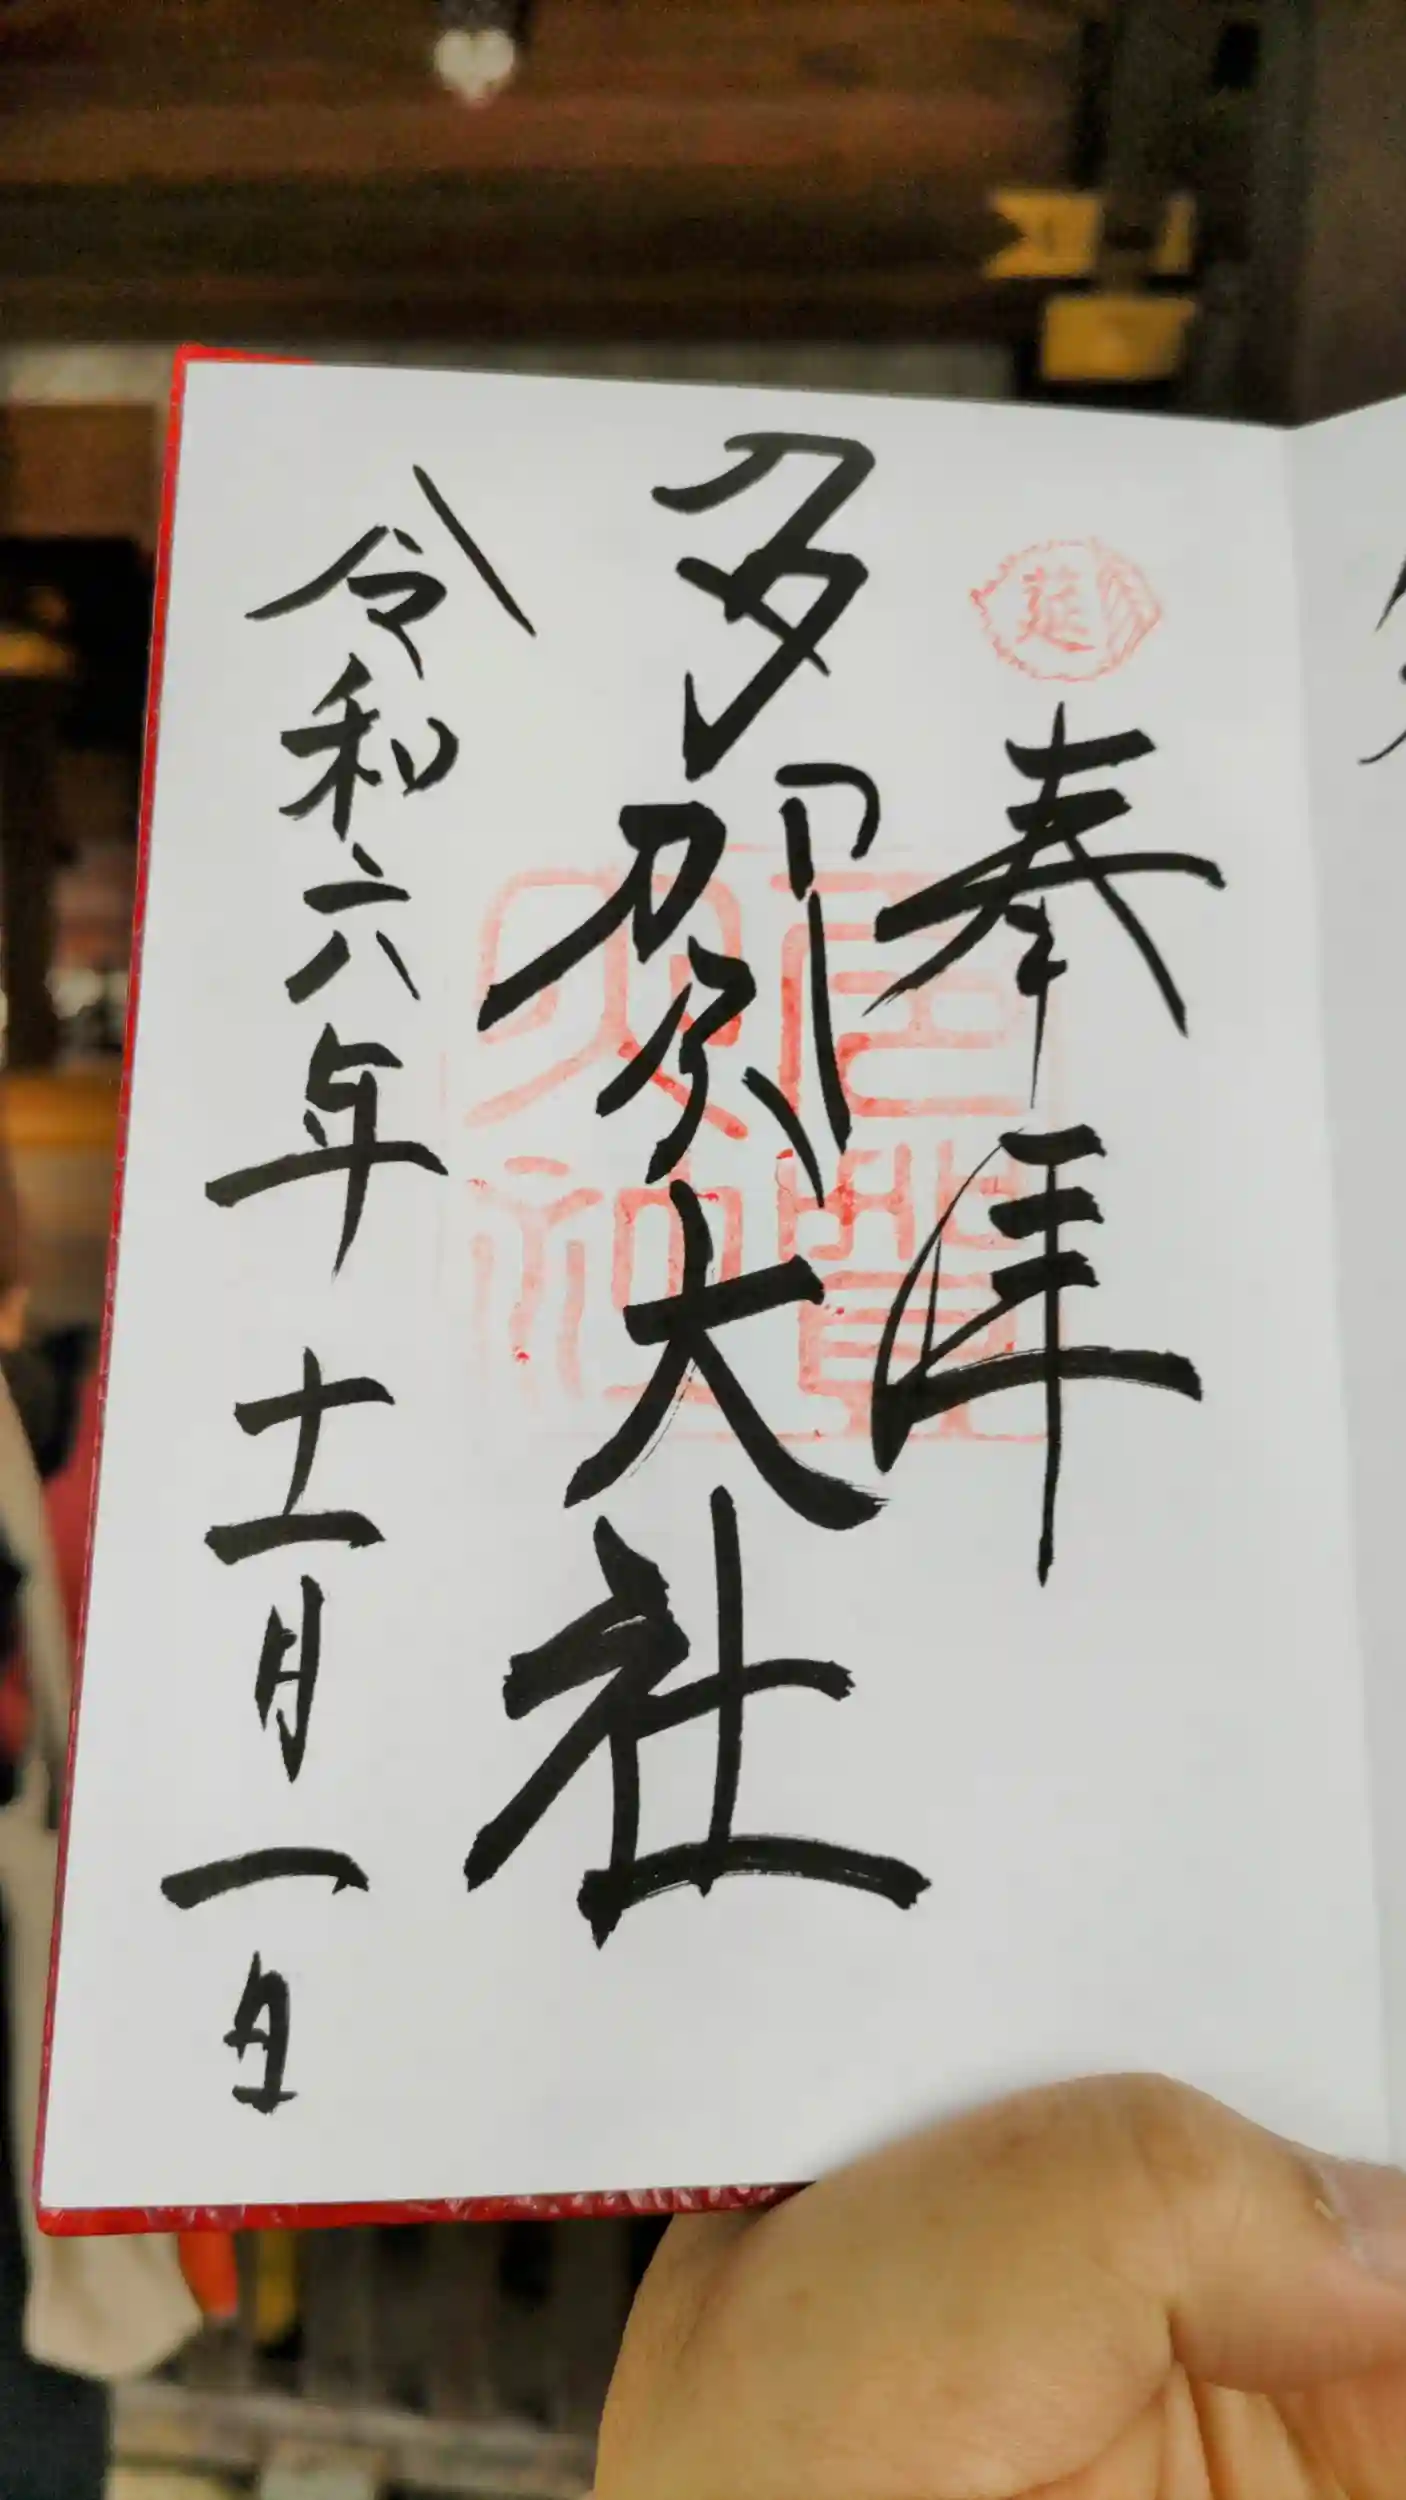 奉拝
延
多賀大社
令和六年十一月一日